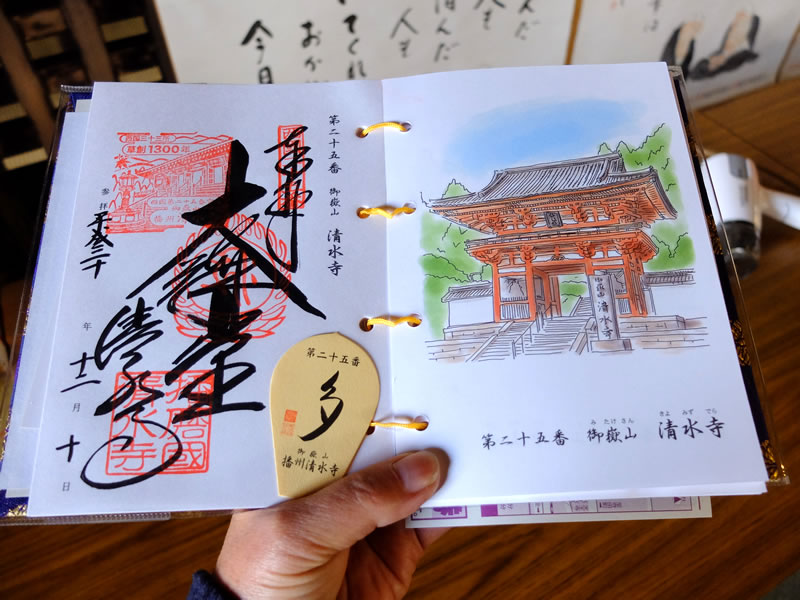 んだ
人も
悩んだ
人も
てくれ
おか
今日
西国三十三所
草創1300年
第二十五番 御嶽山 清水寺
奉拝
大講堂
清水寺
参拝
平成三十
年
十二
月
十
日
播磨國
清水寺
第二十五番
多
御嶽山
播州清水寺
御嶽山 清水寺
みたけさん きよみずでら
第二十五番 御嶽山 清水寺